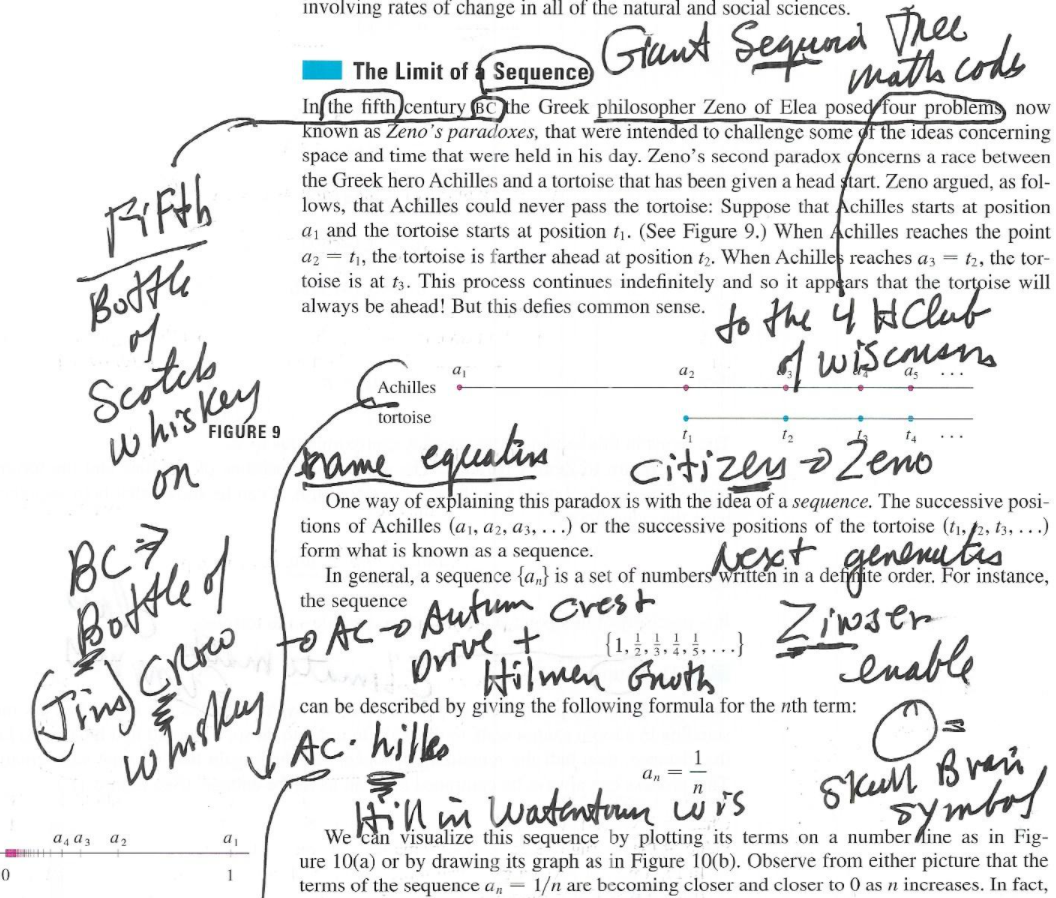 involving rates of change in all of the natural and social sciences.
Giant Sequoia Tree
maths code
The Limit of a Sequence
In the fifth century BC the Greek philosopher Zeno of Elea posed four problems, now
known as Zeno's paradoxes, that were intended to challenge some of the ideas concerning
space and time that were held in his day. Zeno's second paradox concerns a race between
the Greek hero Achilles and a tortoise that has been given a head start. Zeno argued, as fol-
lows, that Achilles could never pass the tortoise: Suppose that Achilles starts at position
a₁ and the tortoise starts at position t₁. (See Figure 9.) When Achilles reaches the point
a₂ = t₁, the tortoise is farther ahead at position t₂. When Achilles reaches a₃ = t₂, the tor-
toise is at t₃. This process continues indefinitely and so it appears that the tortoise will
always be ahead! But this defies common sense.
Fifth
Bottle
of
Scotch
whiskey
on
to the 4 H Club
of wisconsin
a₁ a₂ a₃ a₄ a₅ ...
Achilles
tortoise
t₁ t₂ t₃ t₄ ...
FIGURE 9
name
citizens → Zeno
One way of explaining this paradox is with the idea of a sequence. The successive posi-
tions of Achilles (a₁, a₂, a₃, . . .) or the successive positions of the tortoise (t₁, t₂, t₃, . . .)
form what is known as a sequence.
Next
In general, a sequence {aₙ} is a set of numbers written in a definite order. For instance,
the sequence
BC ⇒
Bottle of
(Jim) Crow
whiskey
→ AC → Autum crest
Drive +
Hilmen
{1, 1/2, 1/3, 1/4, 1/5, . . .}
Zinser
enable
can be described by giving the following formula for the nth term:
AC · hilles
aₙ = 1/n
=
Skull Brain
symbol
Hill in Watertown wis
We can visualize this sequence by plotting its terms on a number line as in Fig-
ure 10(a) or by drawing its graph as in Figure 10(b). Observe from either picture that the
terms of the sequence aₙ = 1/n are becoming closer and closer to 0 as n increases. In fact,
a₄ a₃ a₂ a₁
0 1